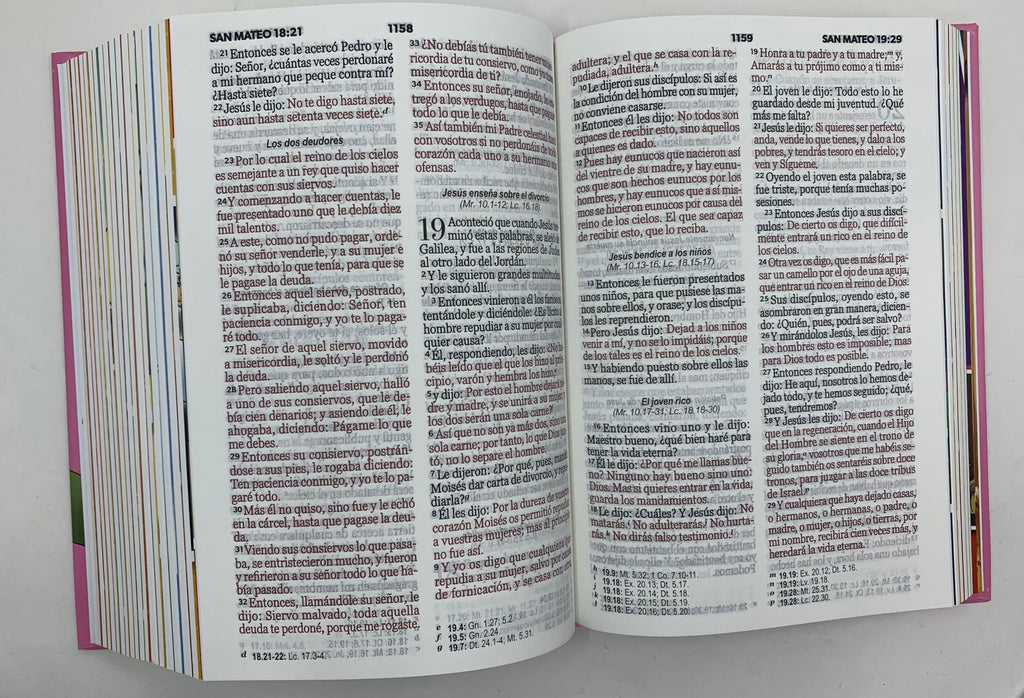 SAN MATEO 18:21
1158
21 Entonces se le acercó Pedro y le
dijo: Señor, ¿cuántas veces perdonaré
a mi hermano que peque contra mí?
¿Hasta siete?
22 Jesús le dijo: No te digo hasta siete,
sino aun hasta setenta veces siete.d
Los dos deudores
23 Por lo cual el reino de los cielos
es semejante a un rey que quiso hacer
cuentas con sus siervos.
24 Y comenzando a hacer cuentas, le
fue presentado uno que le debía diez
mil talentos.
25 A este, como no pudo pagar, orde-
nó su señor venderle, y a su mujer e
hijos, y todo lo que tenía, para que se
le pagase la deuda.
26 Entonces aquel siervo, postrado,
le suplicaba, diciendo: Señor, ten
paciencia conmigo, y yo te lo paga-
ré todo.
27 El señor de aquel siervo, movido
a misericordia, le soltó y le perdonó
la deuda.
28 Pero saliendo aquel siervo, halló
a uno de sus consiervos, que le de-
bía cien denarios; y asiendo de él, le
ahogaba, diciendo: Págame lo que
me debes.
29 Entonces su consiervo, postrán-
dose a sus pies, le rogaba diciendo:
Ten paciencia conmigo, y yo te lo pa-
garé todo.
30 Mas él no quiso, sino fue y le echó
en la cárcel, hasta que pagase la deu-
da.
31 Viendo sus consiervos lo que pasa-
ba, se entristecieron mucho, y fueron
y refirieron a su señor todo lo que ha-
bía pasado.
32 Entonces, llamándole su señor, le
dijo: Siervo malvado, toda aquella
deuda te perdoné, porque me rogaste,
d 18.21-22: Lc. 17.3-4.
33 ¿No debías tú también tener
ricordia de tu consiervo, como yo
misericordia de ti?
34 Entonces su señor, enojado, le en-
tregó a los verdugos, hasta que pagase
todo lo que le debía.
35 Así también mi Padre celestial
con vosotros si no perdonáis de todo
corazón cada uno a su hermano sus
ofensas.
Jesús enseña sobre el divorcio
(Mr. 10.1-12; Lc. 16.18)
19 Aconteció que cuando Jesús ter-
minó estas palabras, se alejó de
Galilea, y fue a las regiones de Judea
al otro lado del Jordán.
2 Y le siguieron grandes multitudes,
y los sanó allí.
3 Entonces vinieron a él los fariseos,
tentándole y diciéndole: ¿Es lícito al
hombre repudiar a su mujer por cual-
quier causa?
4 Él, respondiendo, les dijo: ¿No ha-
béis leído que el que los hizo al prin-
cipio, varón y hembra los hizo,
5 y dijo: Por esto el hombre dejará pa-
dre y madre, y se unirá a su mujer,
y los dos serán una sola carne?
6 Así que no son ya más dos, sino una
sola carne; por tanto, lo que Dios jun-
tó, no lo separe el hombre.
7 Le dijeron: ¿Por qué, pues, mandó
Moisés dar carta de divorcio, y repu-
diarla?
8 Él les dijo: Por la dureza de vuestro
corazón Moisés os permitió repudiar
a vuestras mujeres; mas al principio
no fue así.
9 Y yo os digo que cualquiera que
repudia a su mujer, salvo por causa
de fornicación, y se casa con otra,
e 19.4: Gn. 1.27; 5.2.
f 19.5: Gn. 2.24.
g 19.7: Dt. 24.1-4; Mt. 5.31.
1159
SAN MATEO 19:29
adultera; y el que se casa con la re-
pudiada, adultera.h
10 Le dijeron sus discípulos: Si así es
la condición del hombre con su mujer,
no conviene casarse.
11 Entonces él les dijo: No todos son
capaces de recibir esto, sino aquellos
a quienes es dado.
12 Pues hay eunucos que nacieron así
del vientre de su madre, y hay eunu-
cos que son hechos eunucos por los
hombres, y hay eunucos que a sí mis-
mos se hicieron eunucos por causa del
reino de los cielos. El que sea capaz
de recibir esto, que lo reciba.
Jesús bendice a los niños
(Mr. 10.13-16; Lc. 18.15-17)
13 Entonces le fueron presentados
unos niños, para que pusiese las ma-
nos sobre ellos, y orase; y los discípu-
los les reprendieron.
14 Pero Jesús dijo: Dejad a los niños
venir a mí, y no se lo impidáis; porque
de los tales es el reino de los cielos.
15 Y habiendo puesto sobre ellos las
manos, se fue de allí.
El joven rico
(Mr. 10.17-31; Lc. 18.18-30)
16 Entonces vino uno y le dijo:
Maestro bueno, ¿qué bien haré para
tener la vida eterna?
17 Él le dijo: ¿Por qué me llamas bue-
no? Ninguno hay bueno sino uno:
Dios. Mas si quieres entrar en la vida,
guarda los mandamientos.
18 Le dijo: ¿Cuáles? Y Jesús dijo: No
matarás.i No adulterarás.j No hurta-
rás.k No dirás falso testimonio.l
h 19.9: Mt. 5.32; 1 Co. 7.10-11.
i 19.18: Ex. 20.13; Dt. 5.17.
j 19.18: Ex. 20.14; Dt. 5.18.
k 19.18: Ex. 20.15; Dt. 5.19.
l 19.18: Ex. 20.16; Dt. 5.20.
19 Honra a tu padre y a tu madre;m y,
Amarás a tu prójimo como a ti mis-
mo.n
20 El joven le dijo: Todo esto lo he
guardado desde mi juventud. ¿Qué
más me falta?
21 Jesús le dijo: Si quieres ser perfecto,
anda, vende lo que tienes, y dalo a los
pobres, y tendrás tesoro en el cielo; y
ven y Sígueme.
22 Oyendo el joven esta palabra, se
fue triste, porque tenía muchas po-
sesiones.
23 Entonces Jesús dijo a sus discí-
pulos: De cierto os digo, que difícil-
mente entrará un rico en el reino de
los cielos.
24 Otra vez os digo, que es más fácil pa-
sar un camello por el ojo de una aguja,
que entrar un rico en el reino de Dios.
25 Sus discípulos, oyendo esto, se
asombraron en gran manera, dicien-
do: ¿Quién, pues, podrá ser salvo?
26 Y mirándolos Jesús, les dijo: Para
los hombres esto es imposible; mas
para Dios todo es posible.
27 Entonces respondiendo Pedro, le
dijo: He aquí, nosotros lo hemos de-
jado todo, y te hemos seguido; ¿qué,
pues, tendremos?
28 Y Jesús les dijo: De cierto os digo
que en la regeneración, cuando el Hijo
del Hombre se siente en el trono de
su gloria,o vosotros que me habéis se-
guido también os sentaréis sobre doce
tronos, para juzgar a las doce tribus
de Israel.p
29 Y cualquiera que haya dejado casas,
o hermanos, o hermanas, o padre, o
madre, o mujer, o hijos, o tierras, por
mi nombre, recibirá cien veces más, y
heredará la vida eterna.
m 19.19: Ex. 20.12; Dt. 5.16.
n 19.19: Lv. 19.18.
o 19.28: Mt. 25.31.
p 19.28: Lc. 22.30.